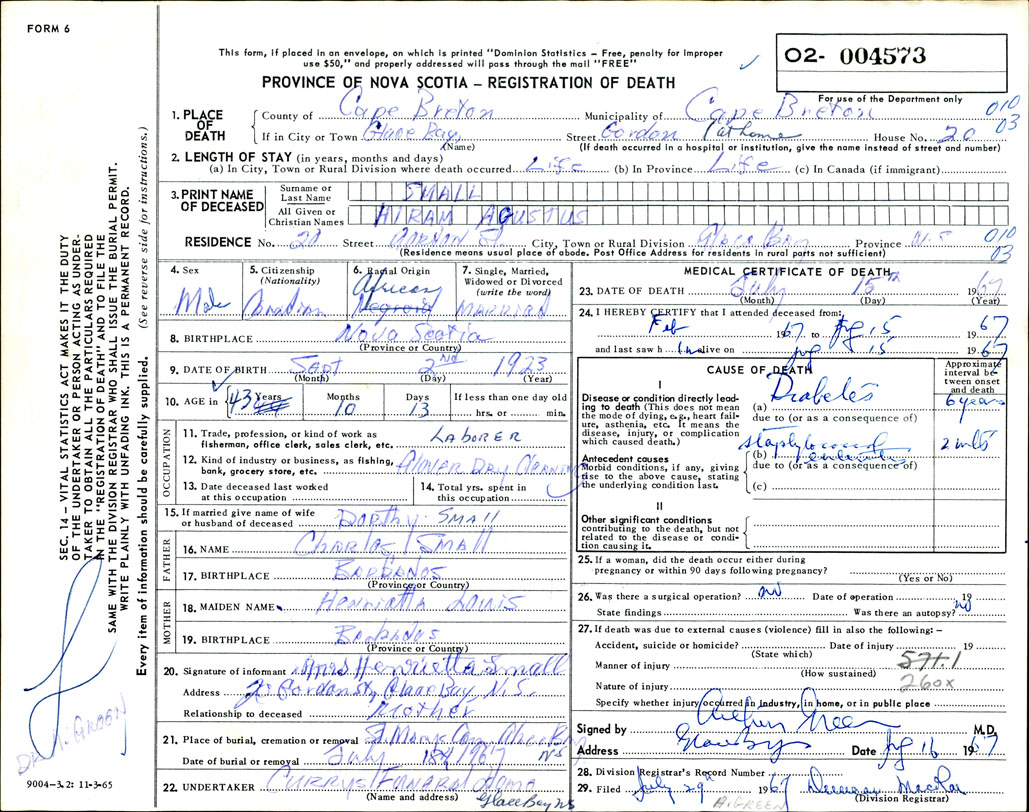 FORM 6
This form, if placed in an envelope, on which is printed "Dominion Statistics – Free, penalty for improper
use $50," and properly addressed will pass through the mail "FREE"
O2- 004573
PROVINCE OF NOVA SCOTIA – REGISTRATION OF DEATH
For use of the Department only
1. PLACE OF DEATH County of Cape Breton Municipality of Cape Breton 010 03
If in City or Town Glace Bay Street Gordon (at home House No. 20
(Name) (If death occurred in a hospital or institution, give the name instead of street and number)
2. LENGTH OF STAY (in years, months and days)
(a) In City, Town or Rural Division where death occurred Life (b) In Province Life (c) In Canada (if immigrant)
3. PRINT NAME OF DECEASED Surname or Last Name SMALL
All Given or Christian Names HIRAM AGUSTUS
RESIDENCE No. 20 Street GORDON St City, Town or Rural Division Glace Bay Province N.S 010 03
(Residence means usual place of abode. Post Office Address for residents in rural parts not sufficient)
4. Sex Male
5. Citizenship (Nationality) Canadian
6. Racial Origin African Negroid
7. Single, Married, Widowed or Divorced (write the word) MARRIED
8. BIRTHPLACE Nova Scotia
(Province or Country)
9. DATE OF BIRTH Sept 2nd 1923
(Month) (Day) (Year)
10. AGE in 43 Years Months 10 Days 13 If less than one day old hrs. or min.
OCCUPATION
11. Trade, profession, or kind of work as fisherman, office clerk, sales clerk, etc. LABORER
12. Kind of industry or business, as fishing, bank, grocery store, etc.
13. Date deceased last worked at this occupation
14. Total yrs. spent in this occupation
15. If married give name of wife or husband of deceased Dorthy Small
FATHER
16. NAME Charles Small
17. BIRTHPLACE Barbados
(Province or Country)
MOTHER
18. MAIDEN NAME Henrietta Louis
19. BIRTHPLACE Barbados
(Province or Country)
20. Signature of informant Mrs Henrietta Small
Address 20 Gordon St, Glace Bay, N.S.
Relationship to deceased Mother
21. Place of burial, cremation or removal
Date of burial or removal July 18th 1967 NS
22. UNDERTAKER CURRYS Funeral Home
(Name and address) Glace Bay NS
MEDICAL CERTIFICATE OF DEATH
23. DATE OF DEATH July 15th 1967
(Month) (Day) (Year)
24. I HEREBY CERTIFY that I attended deceased from:
Feb 1967 to 15 1967
and last saw him alive on 15 1967
CAUSE OF DEATH
Approximate interval between onset and death
I
Disease or condition directly leading to death (This does not mean the mode of dying, e.g., heart failure, asthenia, etc. It means the disease, injury, or complication which caused death.)
(a) Diabetes 6 years
due to (or as a consequence of)
Antecedent causes
Morbid conditions, if any, giving rise to the above cause, stating the underlying condition last.
(b)
due to (or as a consequence of)
(c)
II
Other significant conditions contributing to the death, but not related to the disease or condition causing it.
25. If a woman, did the death occur either during pregnancy or within 90 days following pregnancy?
(Yes or No)
26. Was there a surgical operation? no Date of operation 19
State findings Was there an autopsy? no
27. If death was due to external causes (violence) fill in also the following: –
Accident, suicide or homicide? Date of injury 19
(State which)
Manner of injury 571-1
(How sustained)
Nature of injury 260x
Specify whether injury occurred in industry, in home, or in public place
Signed by Arthur Green M.D.
Address Glace Bay Date 16 1967
28. Division Registrar's Record Number
29. Filed July 29th 1967
A. GREEN (Division Registrar)
SEC. 14 – VITAL STATISTICS ACT MAKES IT THE DUTY
OF THE UNDERTAKER OR PERSON ACTING AS UNDER-
TAKER TO OBTAIN ALL THE PARTICULARS REQUIRED
IN THE "REGISTRATION OF DEATH" AND TO FILE THE
SAME WITH THE DIVISION REGISTRAR WHO SHALL ISSUE BURIAL PERMIT.
WRITE PLAINLY WITH UNFADING INK. THIS IS A PERMANENT RECORD.
Every item of information should be carefully supplied. (See reverse side for instructions.)
DR. A. GREEN
9004-3.2: 11-3-65